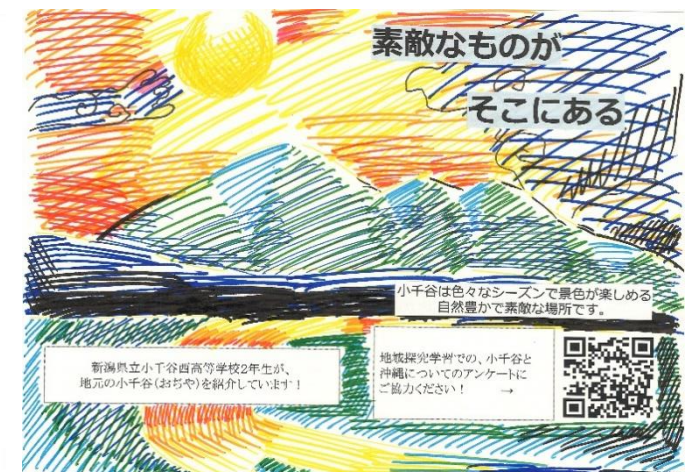 素敵なものが
そこにある
小千谷は色々なシーズンで景色が楽しめる
自然豊かで素敵な場所です。
新潟県立小千谷西高等学校2年生が、
地元の小千谷(おぢや)を紹介しています!
地域探究学習での、小千谷と
沖縄についてのアンケートに
ご協力ください! →